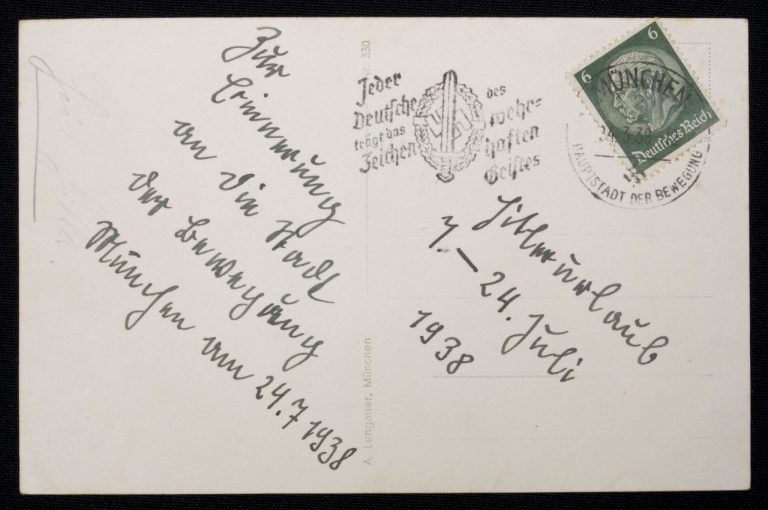 Zur
Erinnerung
an die Stadt
der Bewegung
München am 24.7.1938
A. Lengauer, München
330
Jeder
Deutsche
trägt das
Zeichen
des
wehr=
haften
Geistes
6
6
Deutsches Reich
MÜNCHEN
HAUPTSTADT DER BEWEGUNG
Hitlerurlaub
7. – 24. Juli
1938